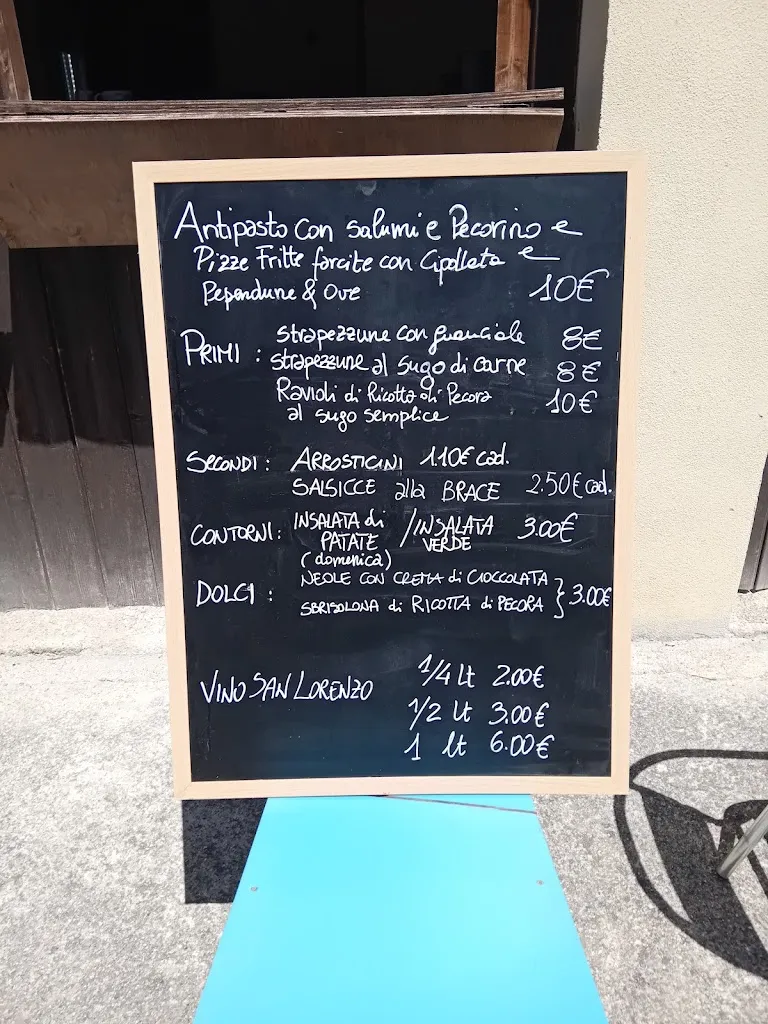 Antipasto con salumi e Pecorino e
Pizze Fritte farcite con Cipollata e
Pependune & Ove 10€
PRIMI : strapezzune con guanciale 8€
strapezzune al sugo di carne 8€
Ravioli di Ricotta di Pecora 10€
al sugo semplice
SECONDI : ARROSTICINI 1.10€ cad.
SALSICCE alla BRACE 2.50€ cad.
CONTORNI : INSALATA di PATATE (domenica) / INSALATA VERDE 3.00€
DOLCI : NEOLE CON CREMA di CIOCCOLATA
SBRISOLONA di RICOTTA di PECORA } 3.00€
VINO SAN LORENZO 1/4 lt 2.00€
1/2 lt 3.00€
1 lt 6.00€